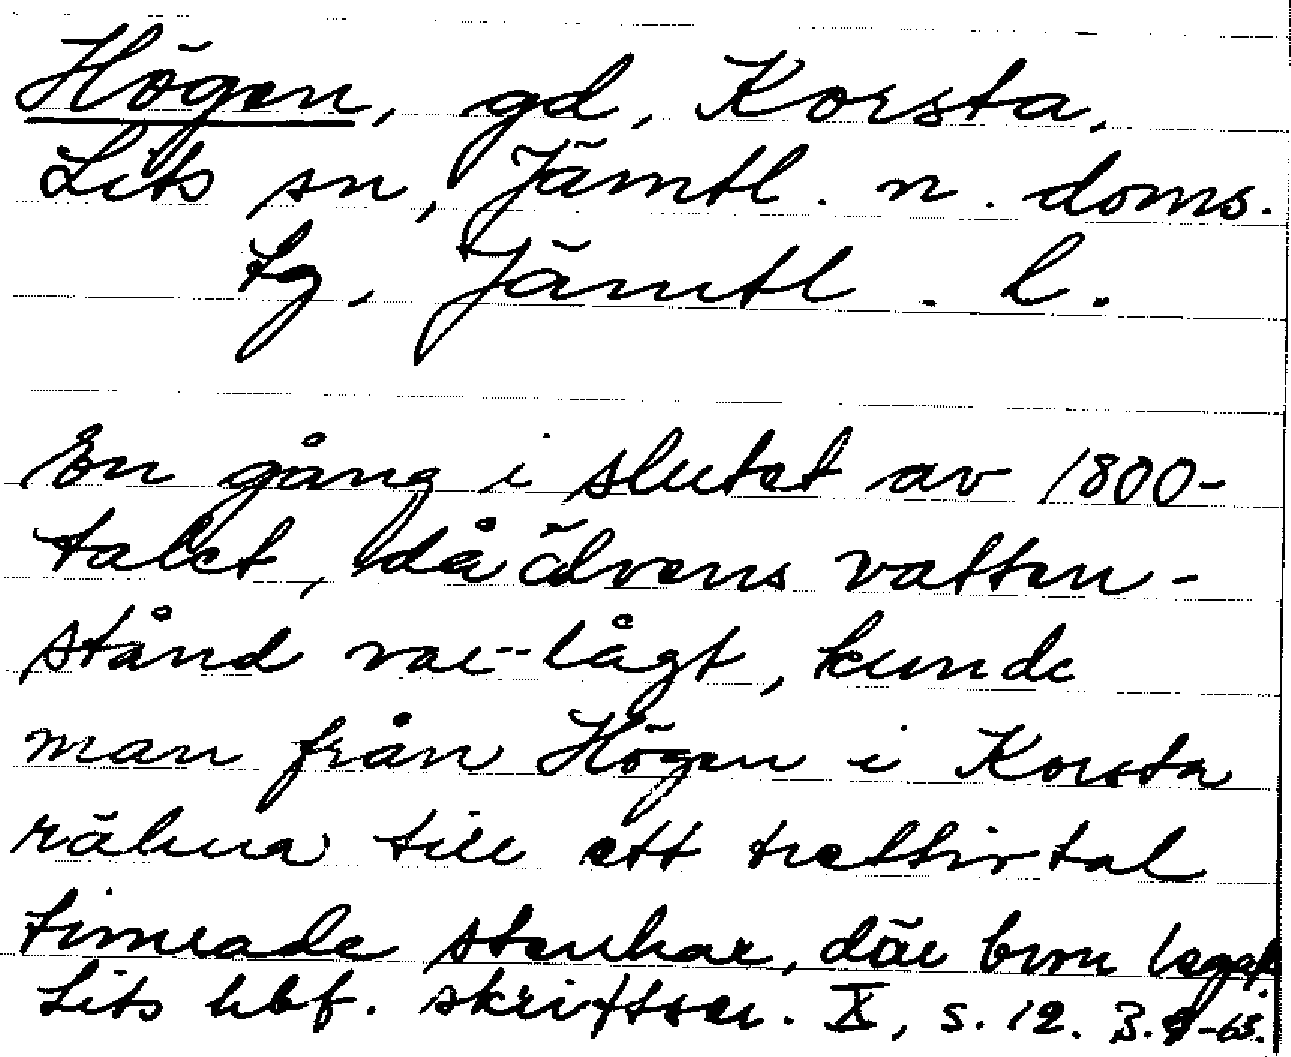 Högen, gd, Korsta,
Lits sn, Jämtl. n. doms.
tg. Jämtl. l.
En gång i slutet av 1800-
talet, då älvens vatten-
stånd var lågt, kunde
man från Högen i Korsta
räkna till ett trettiotal
timrade stenkar, där bron legat.
Lits hbf. skriftser. X, s. 12. 3.9-63.